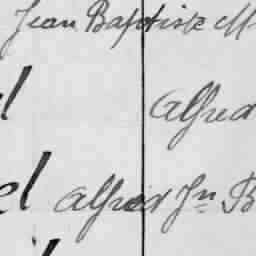 Jean Baptiste
Alfred
Alfred Jn B